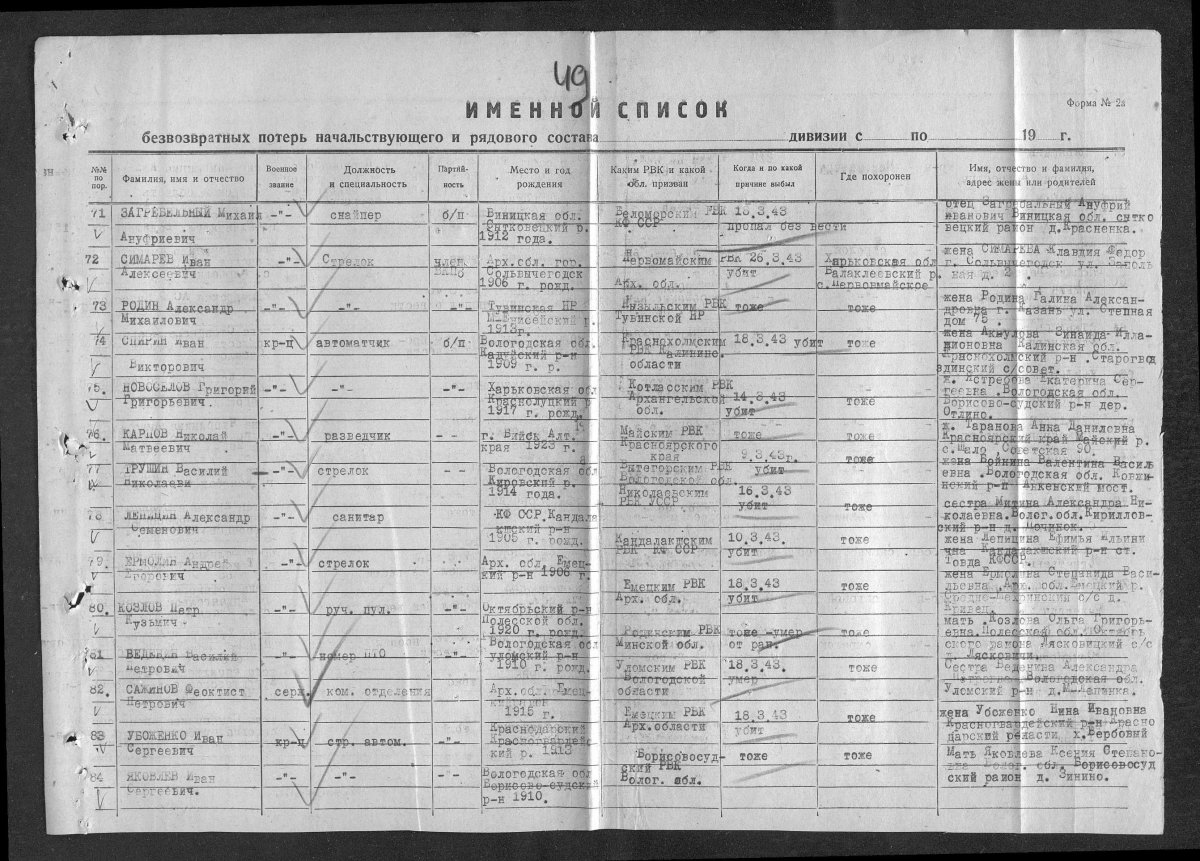 49
ИМЕННОЙ СПИСОК
Форма № 2а
безвозвратных потерь начальствующего и рядового состава дивизии с по 19 г.
№№ по пор.
Фамилия, имя и отчество
Военное звание
Должность и специальность
Партийность
Место и год рождения
Каким РВК и какой обл. призван
Когда и по какой причине выбыл
Где похоронен
Имя, отчество и фамилия, адрес жены или родителей
71 ЗАГРЕБЕЛЬНЫЙ Михаил -"- снайпер б/п Виницкая обл. Беломорским РВК 13.3.43 отец Загребальный Ануфрий
Ануфриевич 1912 года. КФ ССР пропал без вести Иванович Виницкая обл. Ситко
вецкий район д.Красненка.
72 СИМАРЕВ Иван -"- Стрелок член Арх.обл. гор. Первомайским РВК 26.3.43 Харьковская обл жена СИМАРЕВА Клавдия Федор
Алексеевич ВКПб Сольвычегодск убит Балаклеевский р. г. Сольвычегодск ул. Заполь
1906 г. рожд. Арх. обл. с.Первомайское ная д. 2 .
73 РОДИН Александр -"- -"- -"- Тувинская НР РВК тоже тоже жена Родина Галина Алексан-
Михайлович 1913г. Тувинской НР дровна г. Казань ул. Степная
дом 75 .
74 СПИРИН Иван кр-ц автоматчик б/п Вологодская обл. Краснохолмским 18.3.43 убит тоже жена Акулова Зинаида Илла-
Викторович Кадуйский р-н РВК Калинино. рионовна Калинская обл.
1909 г. р. области Краснохолмский р-н .Старогвоз
динский с/совет.
75. НОВОСЕЛОВ Григорий -"- -"- Харьковская обл Котласским РВК 14.3.43 тоже ж. Ястребова Екатерина Сер-
Григорьевич Краснолуцкий р Архангельской убит геевна . Вологодская обл.
1917 г. рожд. обл. Борисово-судский р-н дер.
Отлино.
76. КАРПОВ Николай -"- разведчик - - г. Бийск Алт. Майским РВК тоже тоже ж. Таранова Анна Даниловна
Матвеевич края 1923 г. Красноярского Красноярский край Майский р.
края 9.3.43г. тоже
77 ТРУШИН Василий -"- стрелок - - Вологодская обл Вытегорским РВК убит жена Войнина Валентина Василь
Николаеви Кировский р. Вологодской обл. евна .Вологодская обл. Ковжи
1914 года. Николаевским 16.3.43 нский р-н мост.
78 ЛЕПИЦИН Александр -"- санитар - - КФ ССР.Кандала РВК УССР убит тоже сестра Митина Александра Ни-
Семенович кшский р-н колаевна.Волог.обл.Кириллов-
1905 г. рожд. Кандалакшским 10.3.43. тоже ский р-н д. Починок.
РВК КФ ССР убит жена Лепицина Ефимья Ильини
79. ЕРМОЛИН Андрей -"- стрелок Арх. обл. Емец- чна Кандалакшский р-н ст.
Егорович кий р-н 1906 г. Товда КФССР.
Емецким РВК 18.3.43 тоже жена Ермолина Степанида Васи-
Арх. обл. убит льевна .Арх. обл.Емецкий р.
80. КОЗЛОВ Петр -"- руч. пул. -"- Октябрьский р-н
Кузьмич Полесской обл. мать .Козлова Ольга Григорь-
1920 г. рожд. РВК тоже -умер тоже евна.Полесской обл.Октябрь
Минской обл. от ран. ского района Лясковицкий с/с
81 ВЕДЕНИН Василий -"- номер ПТО -"- Вологодская обл д. Лясковичи.
Петрович Уломский р-н Уломским РВК 18.3.43. тоже Сестра Веденина Александра
1910 г. рожд. Вологодской умер Петровна Вологодская обл.
82. САЖИНОВ Феоктист серж. ком. отделения Арх.обл. Емец- области Уломский р-н
Петрович 1915 г. Емецким РВК 18.3.43 тоже жена Убоженко Нина Ивановна
Арх.области убит Красногвардейский р-н Красно
83 УБОЖЕНКО Иван кр-ц стр. автом. -"- Краснодарский дарский области, х.Вербовый
Сергеевич Красногвардейс
кий р. 1913 Борисовосуд- тоже тоже Мать Яковлева Ксения Степано-
ский РВК вна Волог. обл. Борисовосуд
84 ЯКОВЛЕВ Иван -"- -"- -"- Вологодская обл Волог. обл. ский район д. Зинино.
Сергеевич. Борисово-судский
р-н 1910.